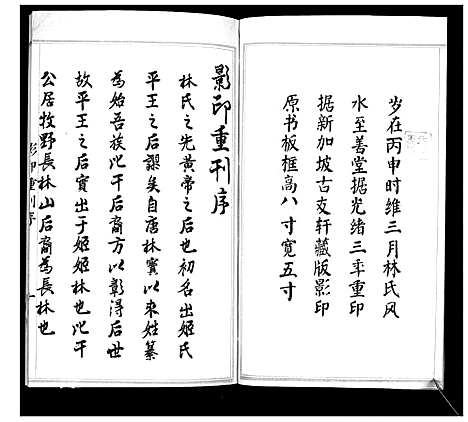 岁在丙申时维三月林氏风
水至善堂据光绪三年重印
据新加坡古友轩藏版影印
原书板框高八寸宽五寸
影印重刊序
林氏之先黄帝之后也初名出姬氏
平王之后谬矣自唐林宝以来姓纂
为始吾族比干后裔方以彰淂后世
故平王之后實出于姬姬林也比干
公居牧野長林山后裔為長林也
影印重刊序
一